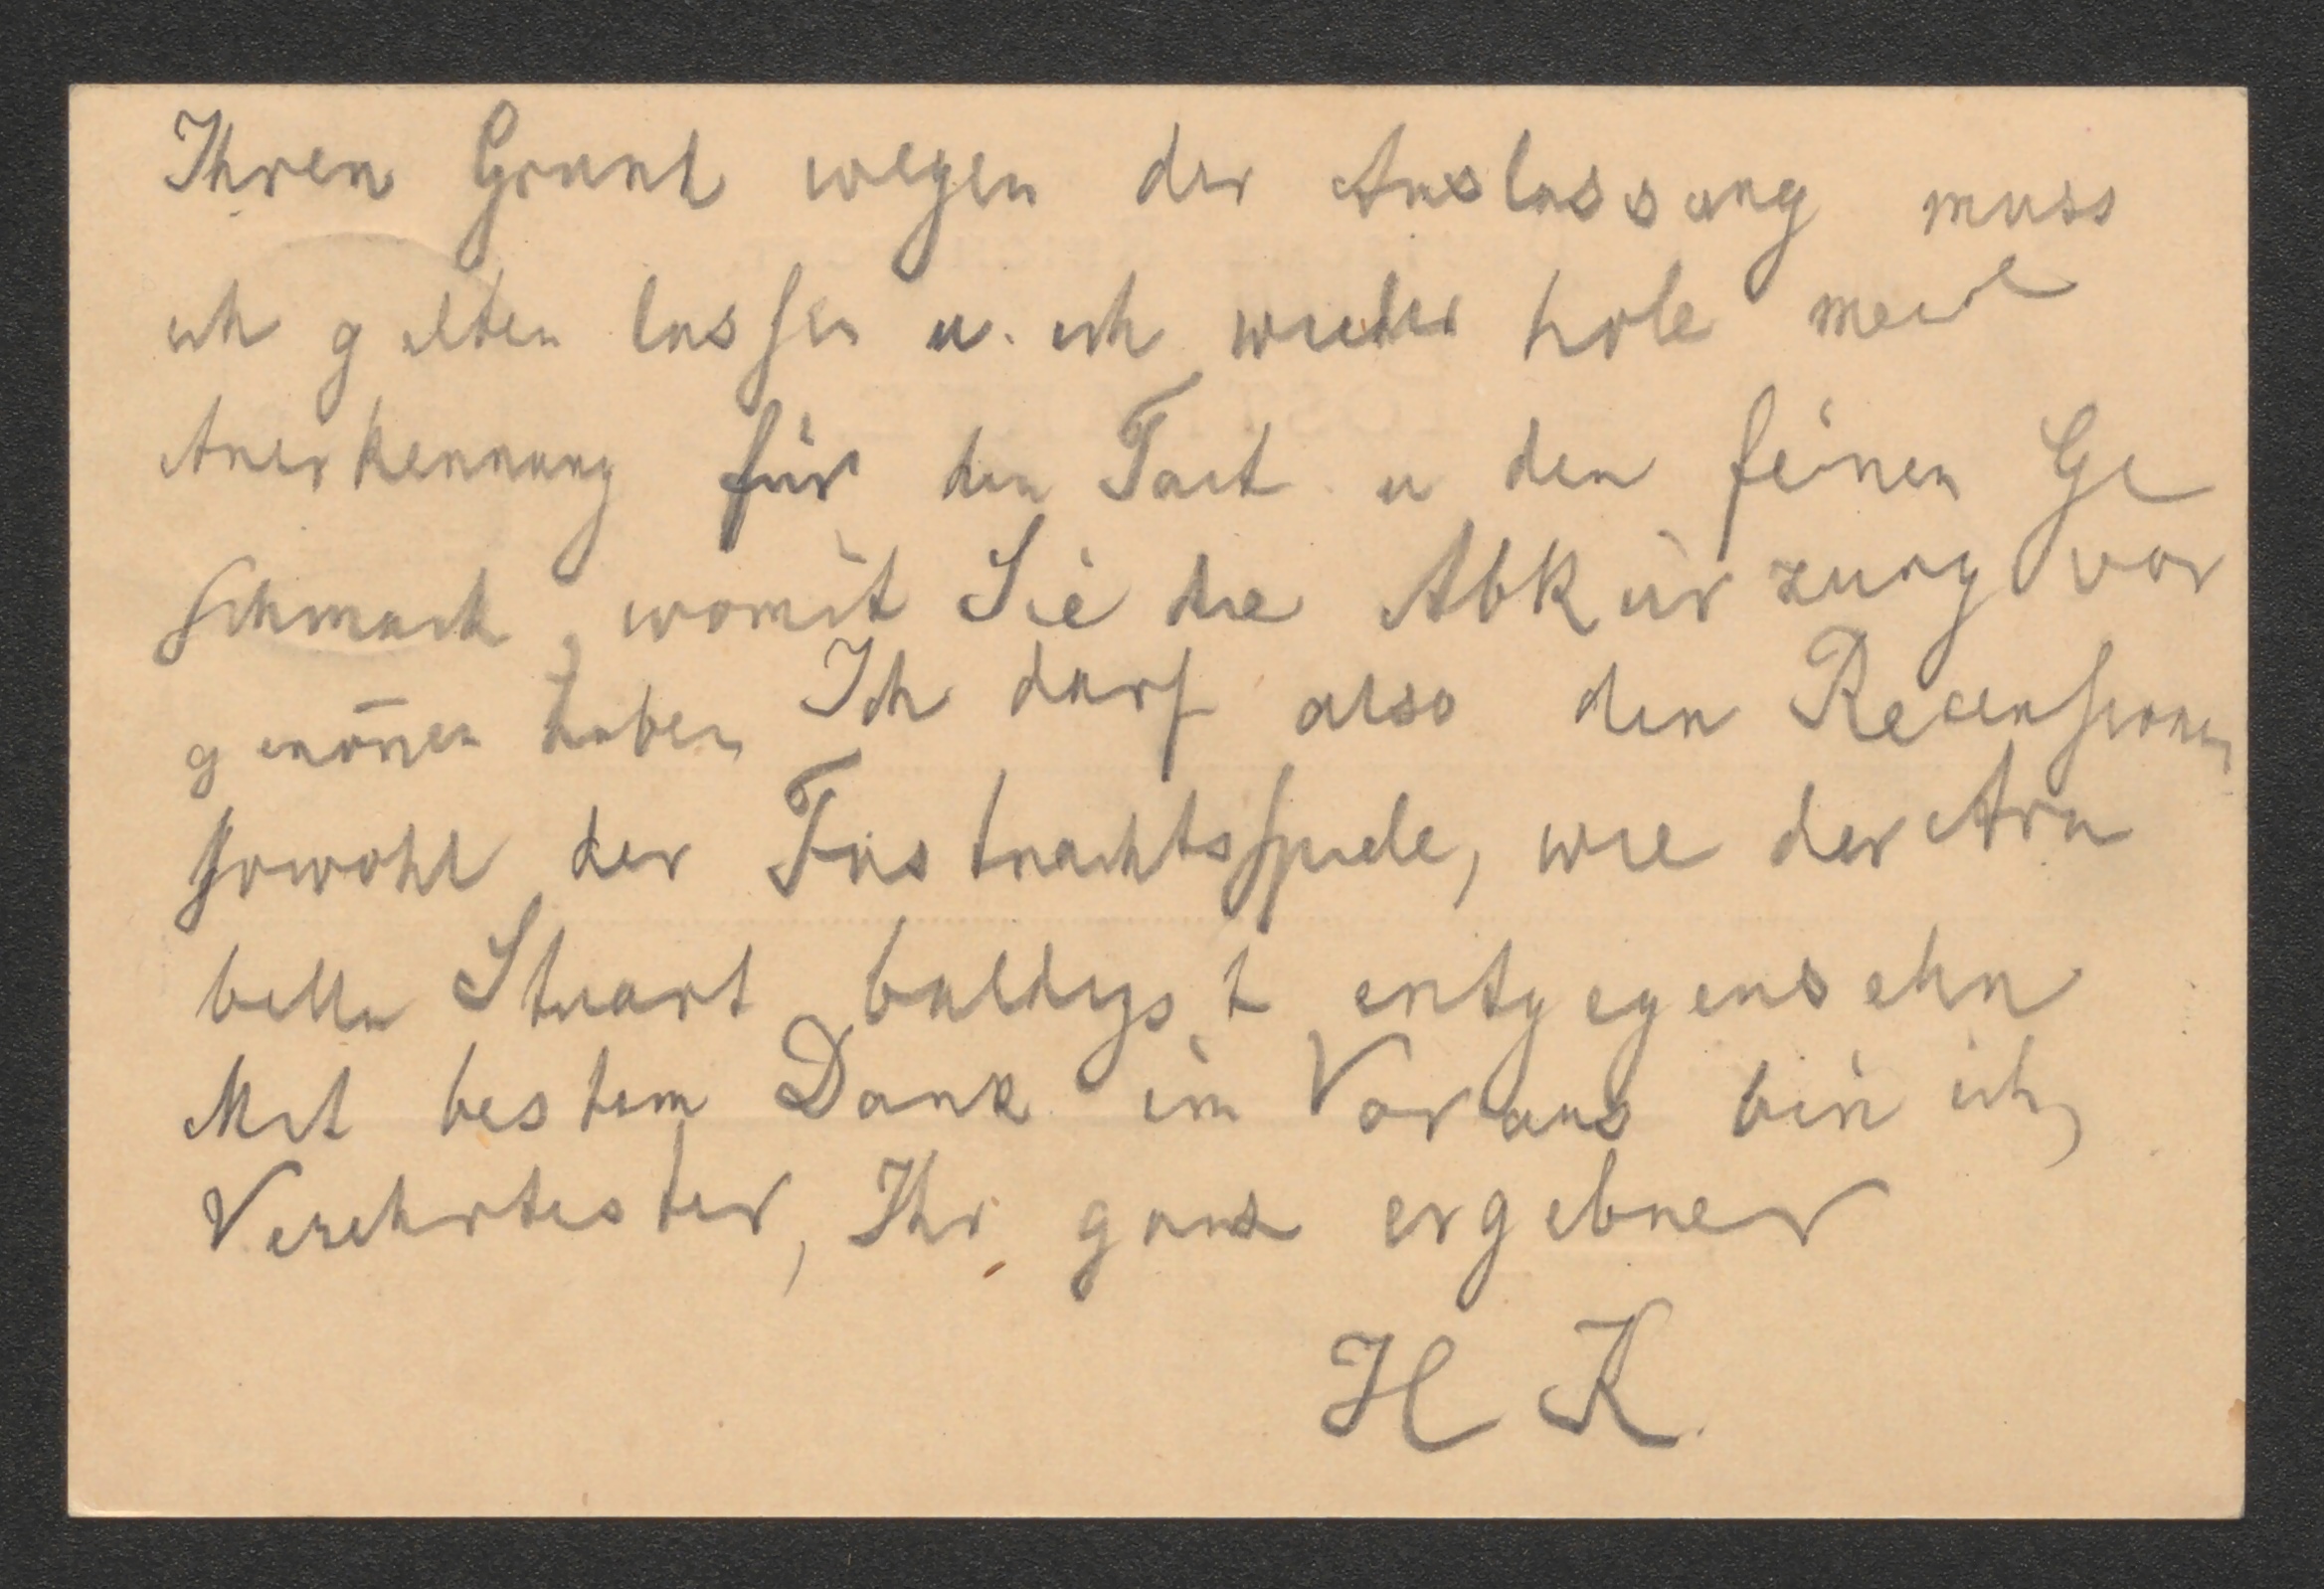 Ihren Grund wegen der Auslassung muss
ich gelten lassen u. ich wiederhole meine
Anerkennung für den Tact u den feinen Ge
schmack, womit Sie die Abkürzung vor
genom̅en haben Ich darf also den Recensionen
sowohl der Fastnachtsspiele, wie der Ara
bella Stuart baldigst entgegensehn
Mit bestem Dank im Voraus bin ich,
Verehrtester, Ihr ganz ergebner
H K.